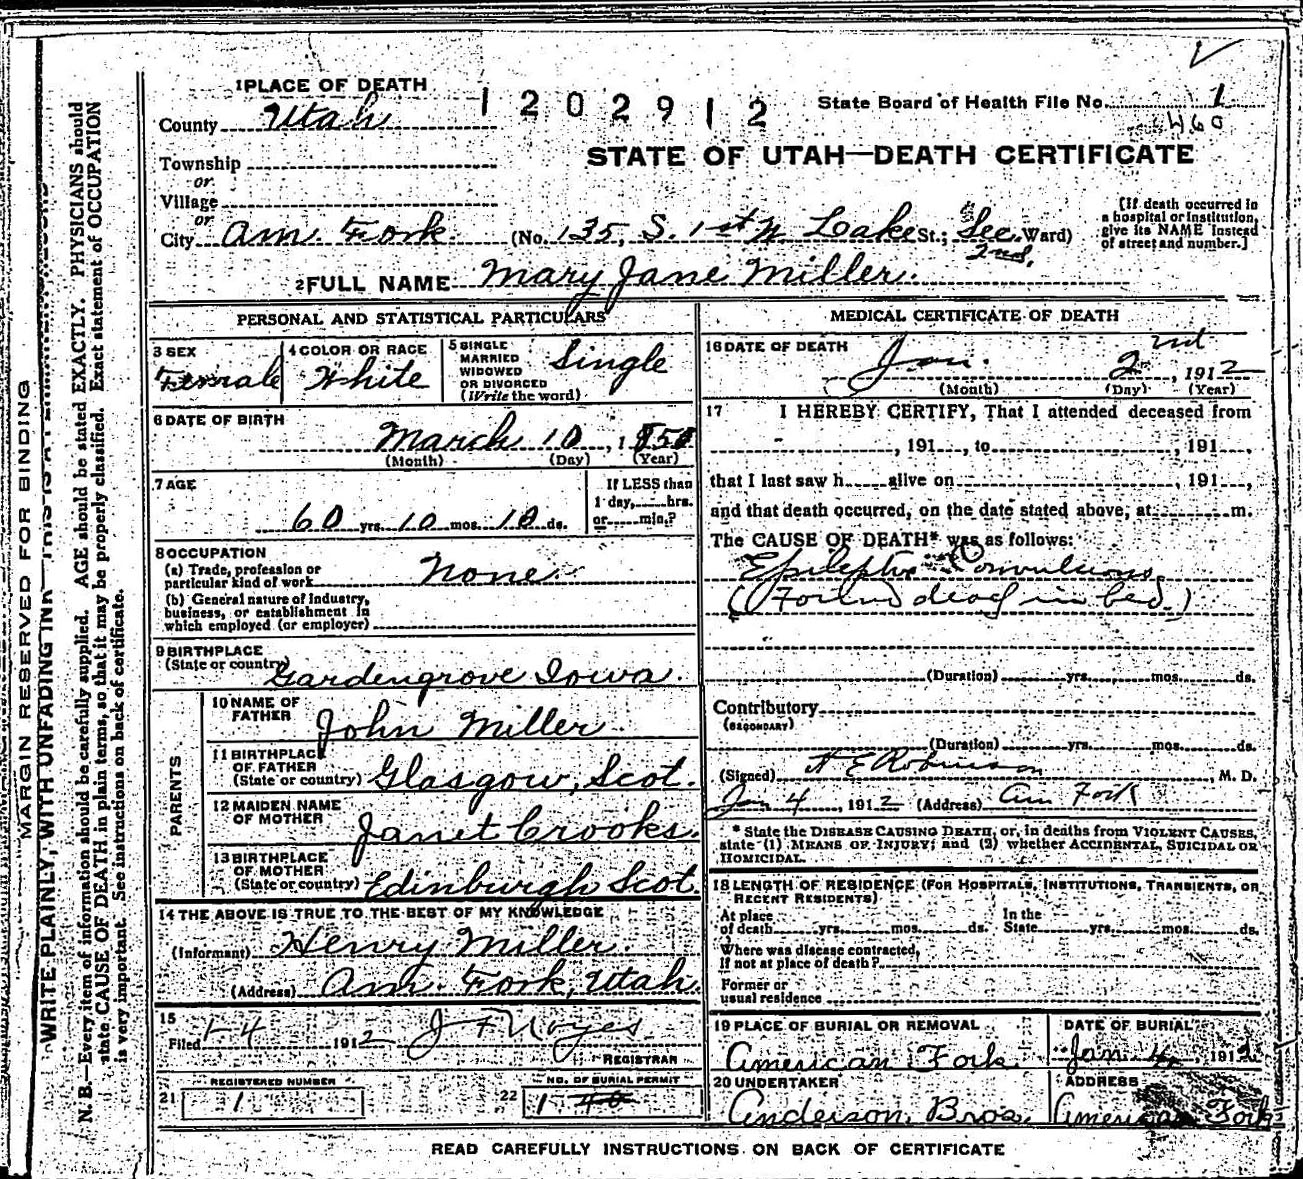 1 PLACE OF DEATH
1202912
State Board of Health File No. 1
460
County Utah
STATE OF UTAH—DEATH CERTIFICATE
Township
or
Village
or
City Am. Fork. (No. 135, S. 1st W. Lake St.; See. Ward)
2nd.
[If death occurred in
a hospital or institution,
give its NAME instead
of street and number.]
2 FULL NAME Mary Jane Miller.
PERSONAL AND STATISTICAL PARTICULARS
3 SEX
Female
4 COLOR OR RACE
White
5 SINGLE
MARRIED
WIDOWED
OR DIVORCED
(Write the word)
Single
6 DATE OF BIRTH
March 10, 1851
(Month) (Day) (Year)
7 AGE
60 yrs. 10 mos. 10 ds.
If LESS than
1 day, hrs.
or min.?
8 OCCUPATION
(a) Trade, profession or
particular kind of work None.
(b) General nature of industry,
business, or establishment in
which employed (or employer)
9 BIRTHPLACE
(State or country) Gardengrove Iowa.
PARENTS
10 NAME OF
FATHER John Miller
11 BIRTHPLACE
OF FATHER
(State or country) Glasgow, Scot.
12 MAIDEN NAME
OF MOTHER Janet Crooks.
13 BIRTHPLACE
OF MOTHER
(State or country) Edinburgh Scot
14 THE ABOVE IS TRUE TO THE BEST OF MY KNOWLEDGE
(Informant) Henry Miller.
(Address) Am. Fork, Utah.
15
Filed 1-4 1912 J F Noyes
REGISTRAR
21 REGISTERED NUMBER
1
22 NO. OF BURIAL PERMIT
1 40
MEDICAL CERTIFICATE OF DEATH
16 DATE OF DEATH
Jan. 2nd, 1912
(Month) (Day) (Year)
17 I HEREBY CERTIFY, That I attended deceased from
, 191 , to , 191 ,
that I last saw h alive on , 191 ,
and that death occurred, on the date stated above, at m.
The CAUSE OF DEATH* was as follows:
Epileptic Convulsions
(Found dead in bed.)
(Duration) yrs. mos. ds.
Contributory
(SECONDARY)
(Duration) yrs. mos. ds.
(Signed) H E Robinson, M. D.
Jan 4, 1912 (Address) Am Fork
* State the DISEASE CAUSING DEATH, or, in deaths from VIOLENT CAUSES,
state (1) MEANS OF INJURY; and (2) whether ACCIDENTAL, SUICIDAL OR
HOMICIDAL.
18 LENGTH OF RESIDENCE (FOR HOSPITALS, INSTITUTIONS, TRANSIENTS, OR
RECENT RESIDENTS)
At place
of death yrs. mos. ds.
In the
State yrs. mos. ds.
Where was disease contracted,
if not at place of death?
Former or
usual residence
19 PLACE OF BURIAL OR REMOVAL
American Fork
DATE OF BURIAL
Jan 4, 1912
20 UNDERTAKER
Anderson Bros.
ADDRESS
American Fork
READ CAREFULLY INSTRUCTIONS ON BACK OF CERTIFICATE
MARGIN RESERVED FOR BINDING
WRITE PLAINLY, WITH UNFADING INK—THIS IS A
N. B.—Every item of information should be carefully supplied. AGE should be stated EXACTLY. PHYSICIANS should
state CAUSE OF DEATH in plain terms, so that it may be properly classified. Exact statement of OCCUPATION
is very important. See instructions on back of certificate.